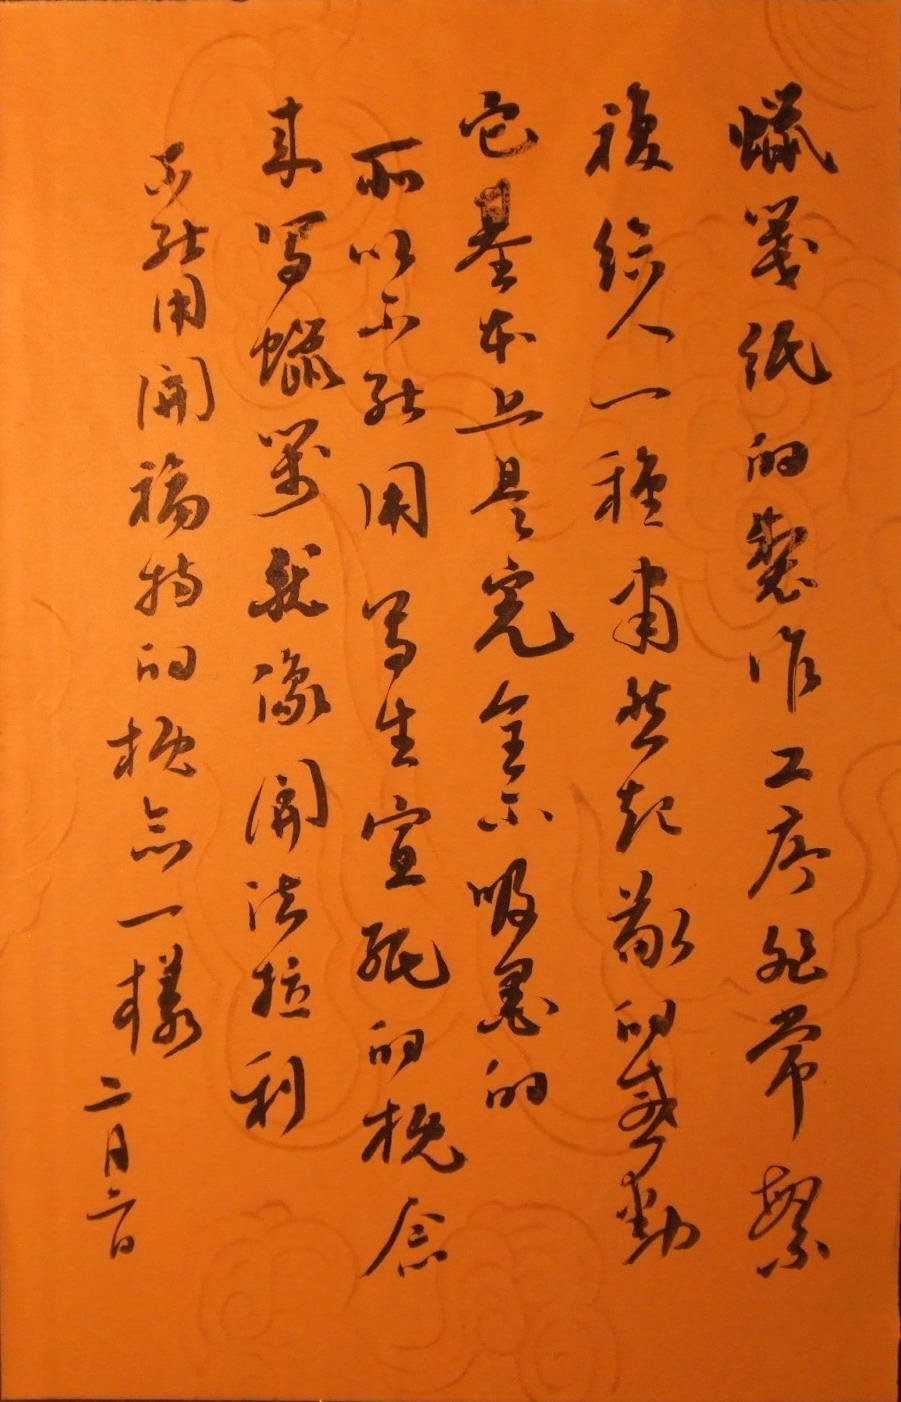 蠟箋紙的製作工序非常繁
複給人一種肅然起敬的感動
它基本上是完全不吸墨的
所以不能用寫生宣紙的概念
來寫蠟箋就像開法拉利
不能用開福特的概念一樣二月六日